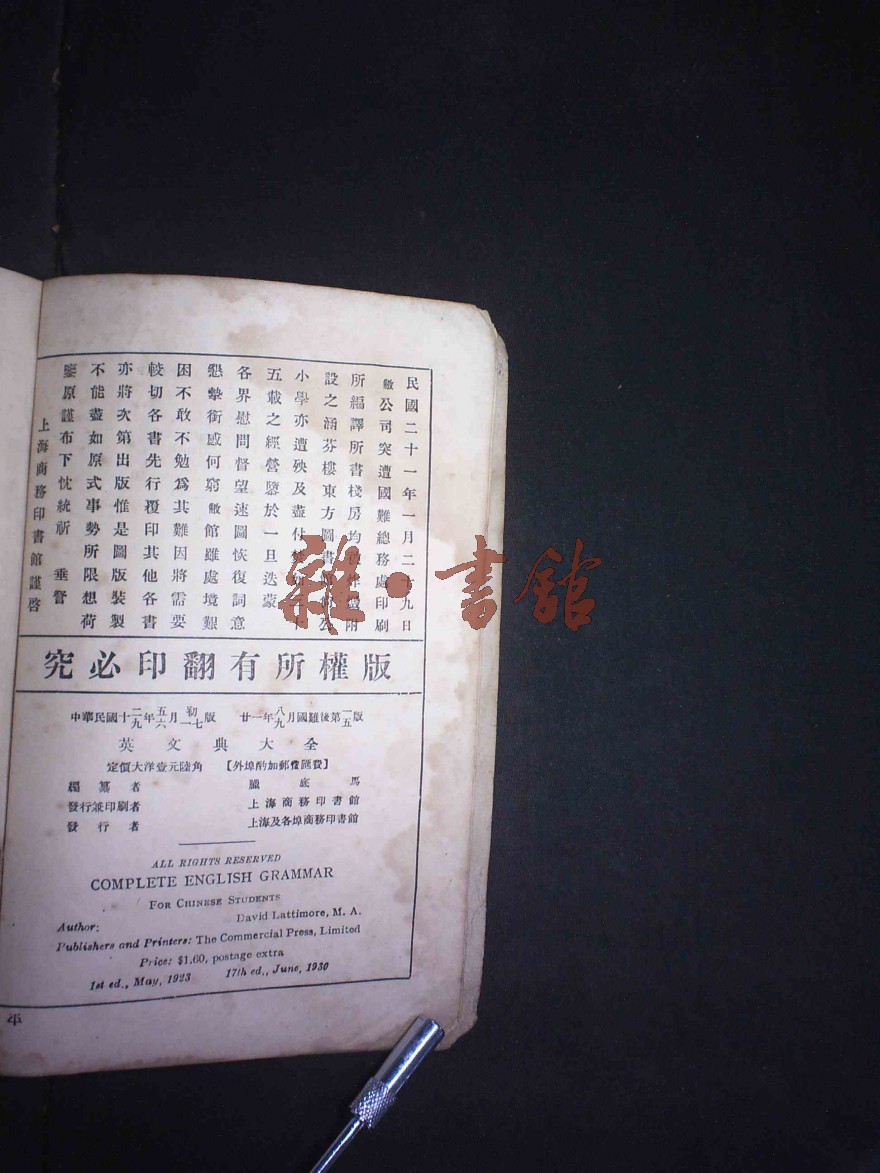 民國二十一年一月二 九日
敝公司突遭國難總務處印刷
所編譯所書棧房均被 附
設之涵芬樓東方圖書
小學亦遭殃及盡付
五載之經營隳於一旦迭蒙
各界慰問督望速圖恢復詞意
懇摯銜感何窮敝館雖處境艱
困不敢不勉爲其難因將需要
較切各書先行覆印其他各書
亦將次第出版惟是圖版裝製
不能盡如原式事勢所限想荷
鑒原謹布下忱統祈 垂詧
上海商務印書館謹啓
究必印翻有所權版
中華民國十二九年五六月初一七版 廿一年八九月國難後第一五版
英文典大全
定價大洋壹元陸角 【外埠酌加郵費匯費】
編纂者 騰底馬
發行兼印刷者 上海商務印書館
發行者 上海及各埠商務印書館
ALL RIGHTS RESERVED
COMPLETE ENGLISH GRAMMAR
FOR CHINESE STUDENTS
Author: David Lattimore, M. A.
Publishers and Printers: The Commercial Press, Limited
Price: $1.60, postage extra
1st ed., May, 1923 17th ed., June, 1930
雜·書館